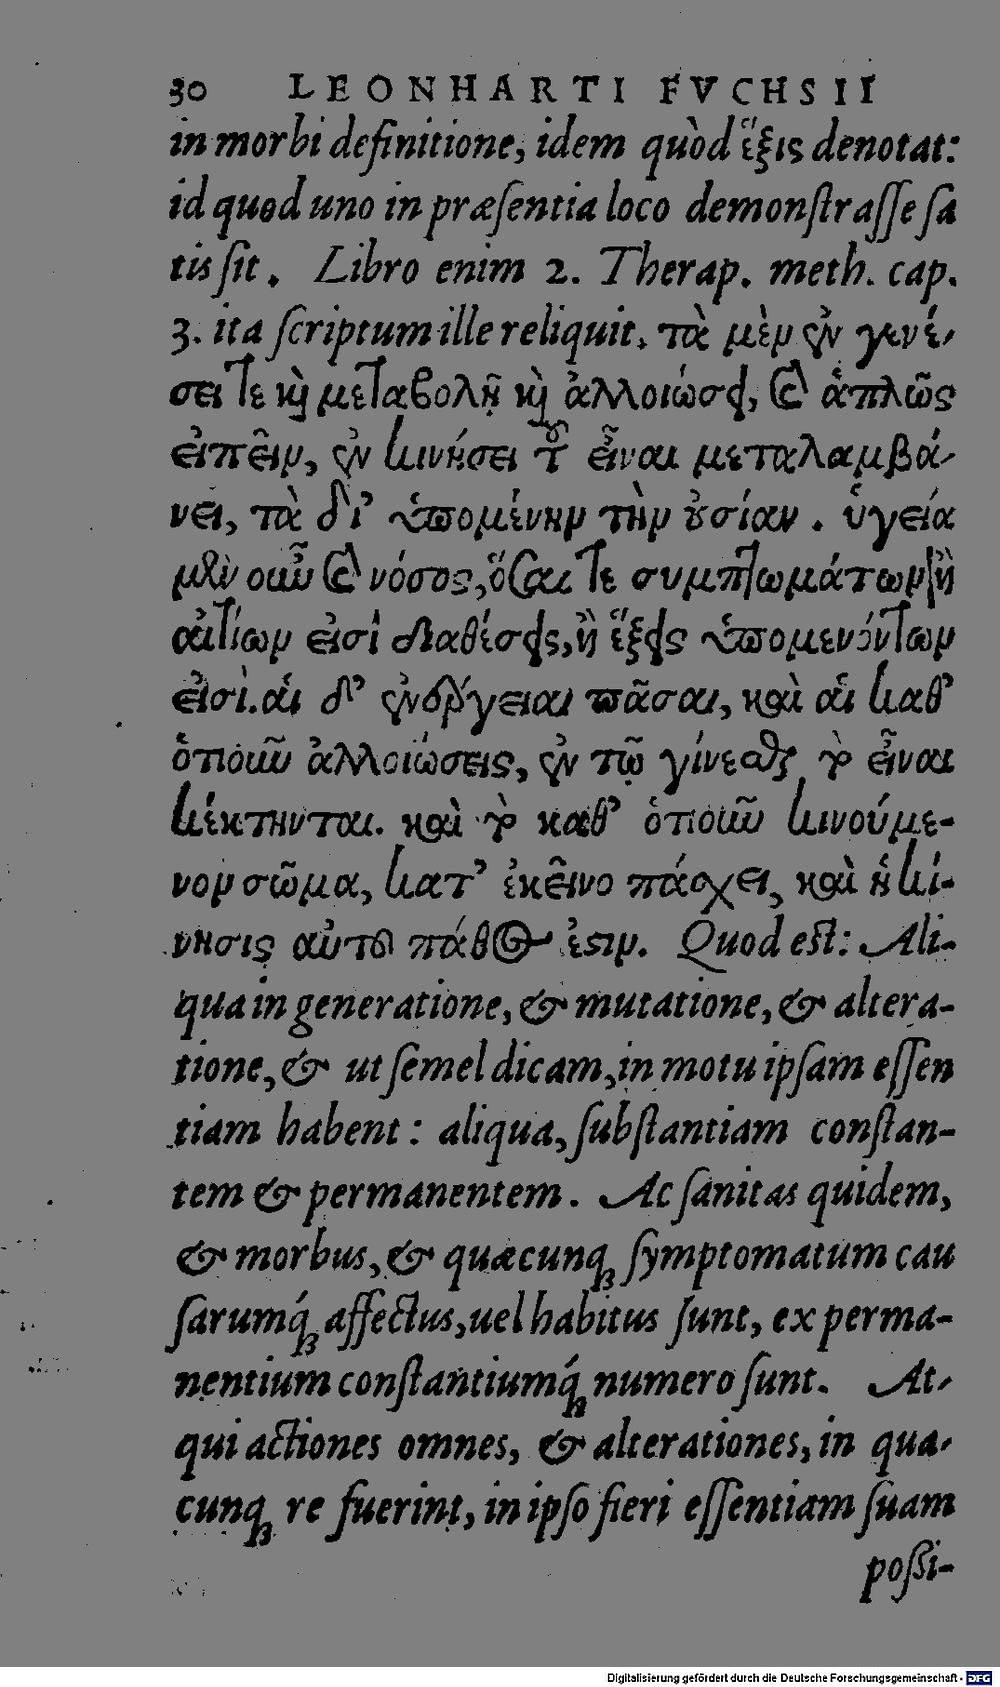 30 LEONHARTI FVCHSII
in morbi definitione, idem quòd ἕξις denotat:
id quod uno in præſentia loco demonſtraſſe ſa
tis ſit. Libro enim 2. Therap. meth. cap.
3. ita ſcriptum ille reliquit. τὰ μὲν ἐν γενέ-
σει τε καὶ μεταβολῇ καὶ ἀλλοιώσει, καὶ ἁπλῶς
εἰπεῖν, ἐν κινήσει τοῦ εἶναι μεταλαμβά-
νει, τὰ δ᾽ ὑπομένην τὴν οὐσίαν. ὑγεία
μὲν οὖν καὶ νόσος, ὅσαι τε συμπτωμάτων ἢ
αἰτίων εἰσὶ διαθέσεις, ἢ ἕξεις ὑπομενόντων
εἰσὶ. αἱ δ᾽ ἐνέργειαι πᾶσαι, καὶ αἱ καθ᾽
ὁτιοῦν ἀλλοιώσεις, ἐν τῷ γίνεσθαι τὸ εἶναι
κέκτηνται. καὶ τὸ καθ᾽ ὁτιοῦν κινούμε-
νον σῶμα, κατ᾽ ἐκεῖνο πάσχει, καὶ ἡ κί-
νησις αὐτοῦ πάθος ἐστιν. Quod eſt: Ali-
qua in generatione, & mutatione, & altera-
tione, & ut ſemel dicam, in motu ipſam eſſen
tiam habent: aliqua, ſubſtantiam conſtan-
tem & permanentem. Ac ſanitas quidem,
& morbus, & quæcunqꝫ ſymptomatum cau
ſarumq́ꝫ affectus, uel habitus ſunt, ex perma-
nentium conſtantiumq́ꝫ numero ſunt. At-
qui actiones omnes, & alterationes, in qua-
cunqꝫ re fuerint, in ipſo fieri eſſentiam ſuam
poßi-
Digitalisierung gefördert durch die Deutsche Forschungsgemeinschaft - DFG